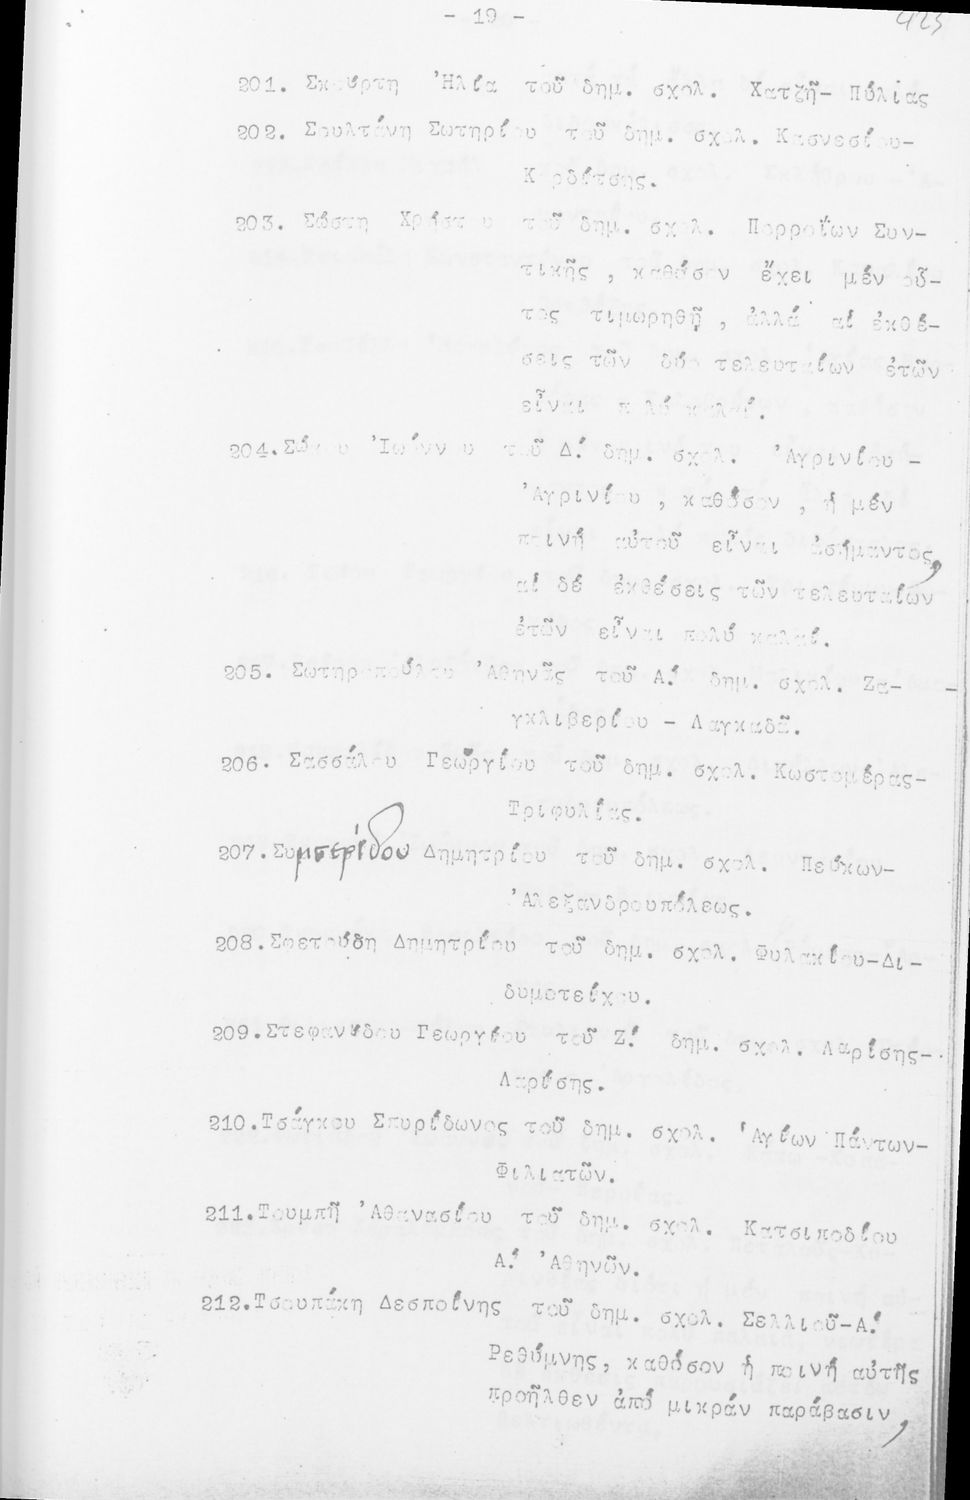 - 19 -
423
201. Σκούρτη Ἠλία τοῦ δημ. σχολ. Χατζῆ- Πυλίας
202. Σουλτάνη Σωτηρίου τοῦ δημ. σχολ. Κασνεσίου-
Καρδίτσης.
203. Σώστη Χρήστου τοῦ δημ. σχολ. Πορροΐων Συν-
τικῆς , καθόσον ἔχει μέν οὗ-
τος τιμωρηθῆ , ἀλλά αἱ ἐκθέ-
σεις τῶν δύο τελευταίων ἐτῶν
εἶναι πολύ καλαί.
204. Σώκου Ἰωάννου τοῦ Δ! δημ. σχολ. Ἀγρινίου -
Ἀγρινίου , καθόσον , ἡ μέν
ποινή αὐτοῦ εἶναι ἀσήμαντος,
αἱ δέ ἐκθέσεις τῶν τελευταίων
ἐτῶν εἶναι πολύ καλαί.
205. Σωτηροπούλου Ἀθηνᾶς τοῦ Α! δημ. σχολ. Ζα- -
γκλιβερίου - Λαγκαδᾶ.
206. Σασσάλου Γεωργίου τοῦ δημ. σχολ. Κωστομέρας-
Τριφυλίας.
207. Συμπερίδου Δημητρίου τοῦ δημ. σχολ. Πεύκων-
Ἀλεξανδρουπόλεως.
208. Σφετούδη Δημητρίου τοῦ δημ. σχολ. Φυλακίου-Δι-
δυμοτείχου.
209. Στεφανίδου Γεωργίου τοῦ Ζ! δημ. σχολ. Λαρίσης-
Λαρίσης.
210. Τσάγκου Σπυρίδωνος τοῦ δημ. σχολ. Ἁγίων Πάντων-
Φιλιατῶν.
211. Τουμπῆ Ἀθανασίου τοῦ δημ. σχολ. Κατσιποδίου
Α! Ἀθηνῶν.
212. Τσουπάκη Δεσποίνης τοῦ δημ. σχολ. Σελλιοῦ-Α!
Ρεθύμνης, καθόσον ἡ ποινή αὐτῆς
προῆλθεν ἀπό μικράν παράβασιν,